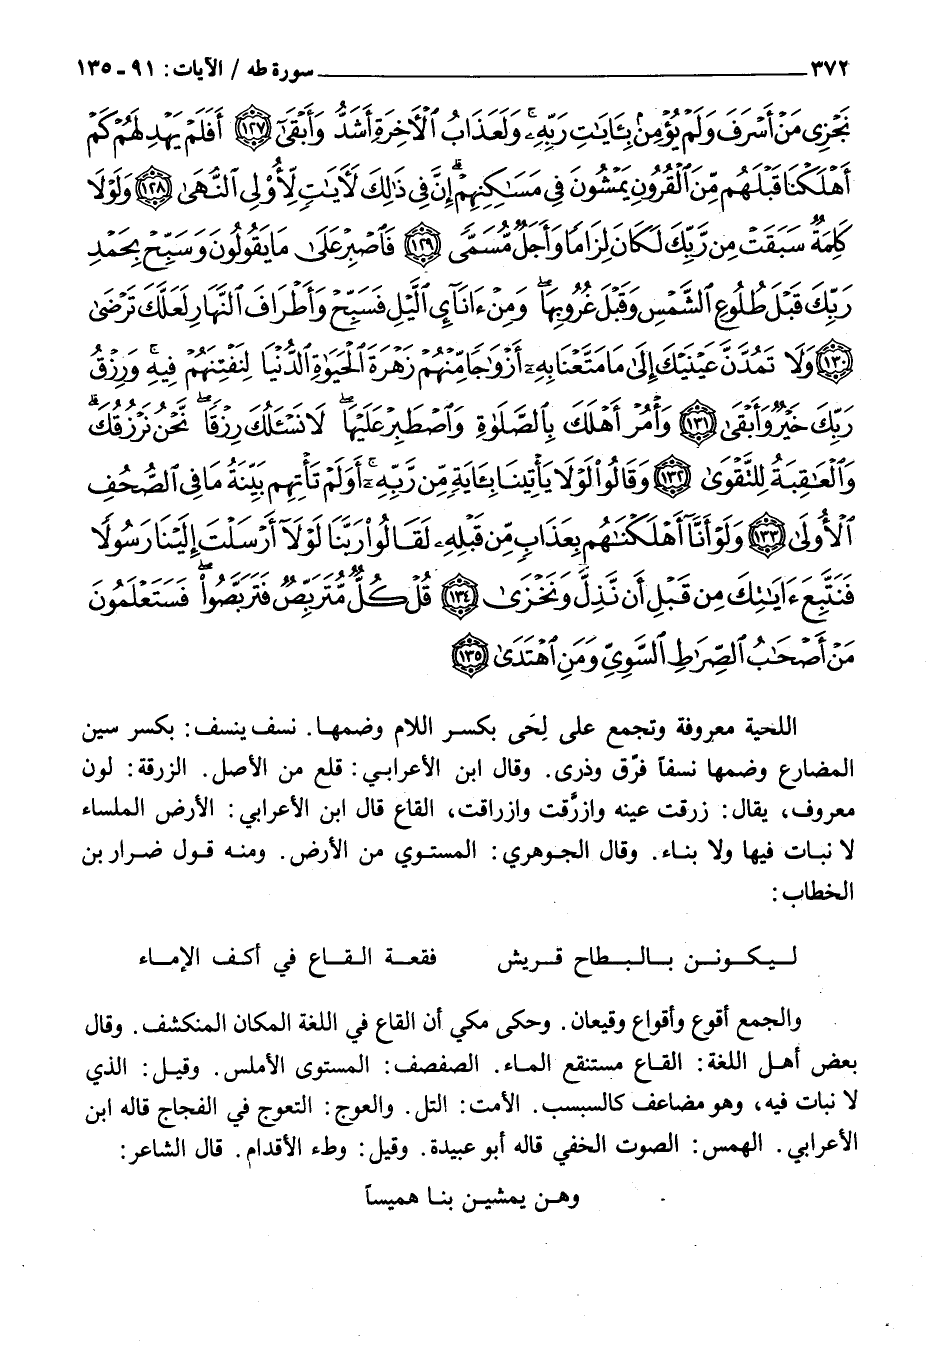 ٣٧٢ ــــــــــــــــــــــــــــــــــــــــ سورة طه / الآيات: ٩١ - ١٣٥
نَجْزِى مَنْ أَسْرَفَ وَلَمْ يُؤْمِنۢ بِـَٔايَـٰتِ رَبِّهِۦ ۚ وَلَعَذَابُ ٱلْـَٔاخِرَةِ أَشَدُّ وَأَبْقَىٰٓ ﴿١٢٧﴾ أَفَلَمْ يَهْدِ لَهُمْ كَمْ
أَهْلَكْنَا قَبْلَهُم مِّنَ ٱلْقُرُونِ يَمْشُونَ فِى مَسَـٰكِنِهِمْ ۗ إِنَّ فِى ذَٰلِكَ لَـَٔايَـٰتٍ لِّأُو۟لِى ٱلنُّهَىٰ ﴿١٢٨﴾ وَلَوْلَا
كَلِمَةٌ سَبَقَتْ مِن رَّبِّكَ لَكَانَ لِزَامًا وَأَجَلٌ مُّسَمًّى ﴿١٢٩﴾ فَٱصْبِرْ عَلَىٰ مَا يَقُولُونَ وَسَبِّحْ بِحَمْدِ
رَبِّكَ قَبْلَ طُلُوعِ ٱلشَّمْسِ وَقَبْلَ غُرُوبِهَا ۖ وَمِنْ ءَانَآئِ ٱلَّيْلِ فَسَبِّحْ وَأَطْرَافَ ٱلنَّهَارِ لَعَلَّكَ تَرْضَىٰ
﴿١٣٠﴾ وَلَا تَمُدَّنَّ عَيْنَيْكَ إِلَىٰ مَا مَتَّعْنَا بِهِۦٓ أَزْوَٰجًا مِّنْهُمْ زَهْرَةَ ٱلْحَيَوٰةِ ٱلدُّنْيَا لِنَفْتِنَهُمْ فِيهِ ۚ وَرِزْقُ
رَبِّكَ خَيْرٌ وَأَبْقَىٰ ﴿١٣١﴾ وَأْمُرْ أَهْلَكَ بِٱلصَّلَوٰةِ وَٱصْطَبِرْ عَلَيْهَا ۖ لَا نَسْـَٔلُكَ رِزْقًا ۖ نَّحْنُ نَرْزُقُكَ ۗ
وَٱلْعَـٰقِبَةُ لِلتَّقْوَىٰ ﴿١٣٢﴾ وَقَالُوا۟ لَوْلَا يَأْتِينَا بِـَٔايَةٍ مِّن رَّبِّهِۦٓ ۚ أَوَلَمْ تَأْتِهِم بَيِّنَةُ مَا فِى ٱلصُّحُفِ
ٱلْأُولَىٰ ﴿١٣٣﴾ وَلَوْ أَنَّآ أَهْلَكْنَـٰهُم بِعَذَابٍ مِّن قَبْلِهِۦ لَقَالُوا۟ رَبَّنَا لَوْلَآ أَرْسَلْتَ إِلَيْنَا رَسُولًا
فَنَتَّبِعَ ءَايَـٰتِكَ مِن قَبْلِ أَن نَّذِلَّ وَنَخْزَىٰ ﴿١٣٤﴾ قُلْ كُلٌّ مُّتَرَبِّصٌ فَتَرَبَّصُوا۟ ۖ فَسَتَعْلَمُونَ
مَنْ أَصْحَـٰبُ ٱلصِّرَٰطِ ٱلسَّوِىِّ وَمَنِ ٱهْتَدَىٰ ﴿١٣٥﴾
اللحية معروفة وتجمع على لِحَى بكسر اللام وضمها. نسف ينسف: بكسر سين
المضارع وضمها نسفاً فرّق وذرى. وقال ابن الأعرابي: قلع من الأصل. الزرقة: لون
معروف، يقال: زرقت عينه وازرَّقت وازراقت، القاع قال ابن الأعرابي: الأرض الملساء
لا نبات فيها ولا بناء. وقال الجوهري: المستوي من الأرض. ومنه قول ضرار بن
الخطاب:
ليكونن بالبطاح قريش فقعة القاع في أكف الإماء
والجمع أقوع وأقواع وقيعان. وحكى مكي أن القاع في اللغة المكان المنكشف. وقال
بعض أهل اللغة: القاع مستنقع الماء. الصفصف: المستوى الأملس. وقيل: الذي
لا نبات فيه، وهو مضاعف كالسبسب. الأمت: التل. والعوج: التعوج في الفجاج قاله ابن
الأعرابي. الهمس: الصوت الخفي قاله أبو عبيدة. وقيل: وطء الأقدام. قال الشاعر:
وهن يمشين بنا هميساً